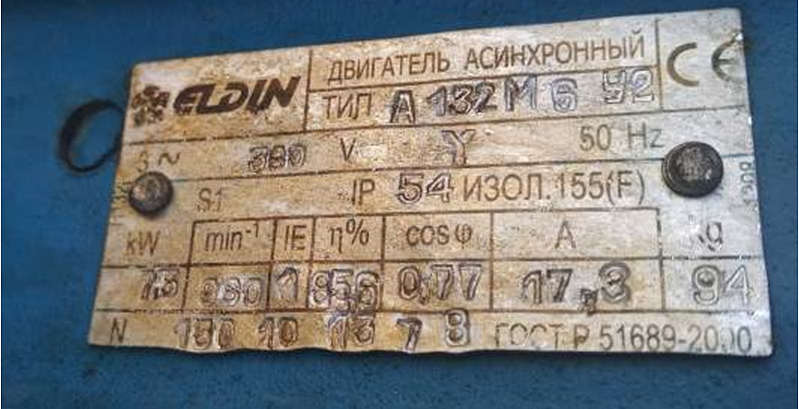 ELDIN
ДВИГАТЕЛЬ АСИНХРОННЫЙ
ТИП А 132 М 6 У2
CE
3 ~ 380 V Y 50 Hz
S1 IP 54 ИЗОЛ.155(F)
kW min⁻¹ IE η% cos φ A kg
7,5 960 1 856 0,77 17,3 94
N 150 10 13 7 8 ГОСТ Р 51689-2000